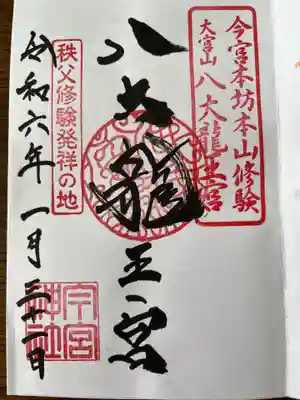 今宮本坊本山修験
大宮山 八大龍王宮
八大龍王宮
秩父修験発祥の地
令和六年一月三十一日
今宮
神社